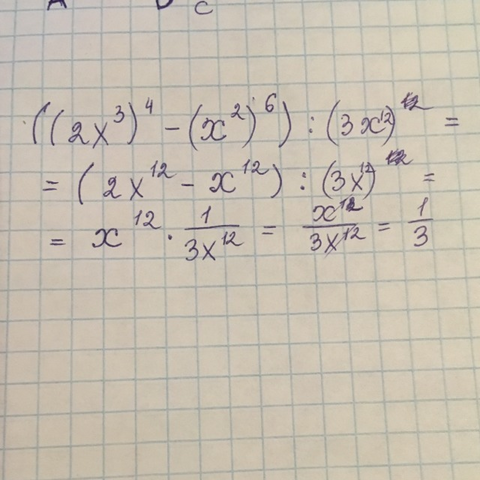 A D C
((2x³)⁴ - (x²)⁶) : (3x¹²) =
= (2x¹² - x¹²) : (3x¹²) =
= x¹² · 1/3x¹² = x¹²/3x¹² = 1/3